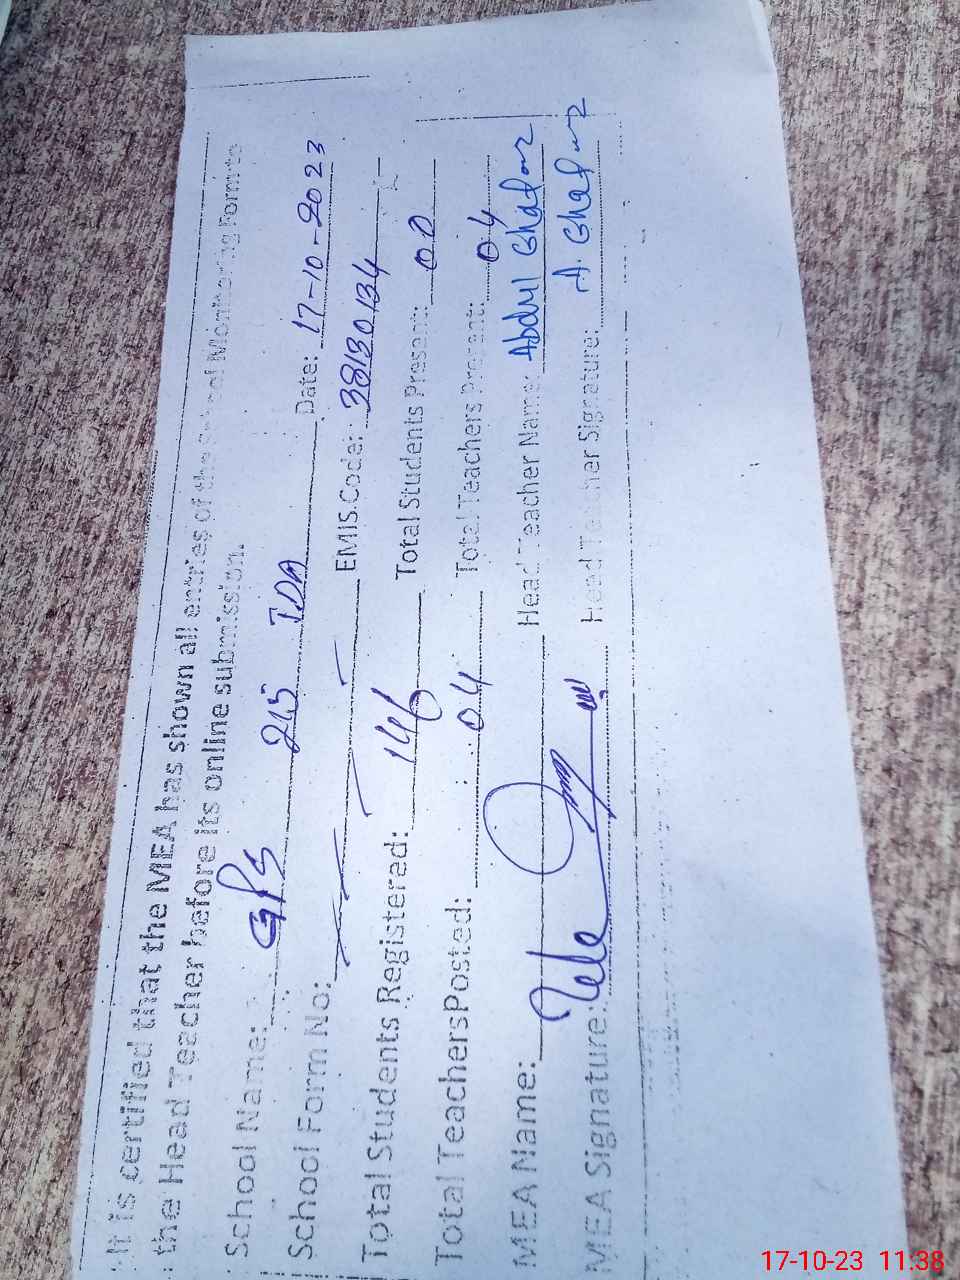 It is certified that the MEA has shown all entries of the School Monitoring Form to
the Head Teacher before its online submission.
School Name: GPS 215 TDA Date: 17-10-2023
School Form No: EMIS Code: 38130134
Total Students Registered: 146 Total Students Present: 00
Total Teachers Posted: 04 Total Teachers Present: 04
MEA Name: Head Teacher Name: Abdul Ghafoor
MEA Signature: Head Teacher Signature: A. Ghafoor
17-10-23 11:38